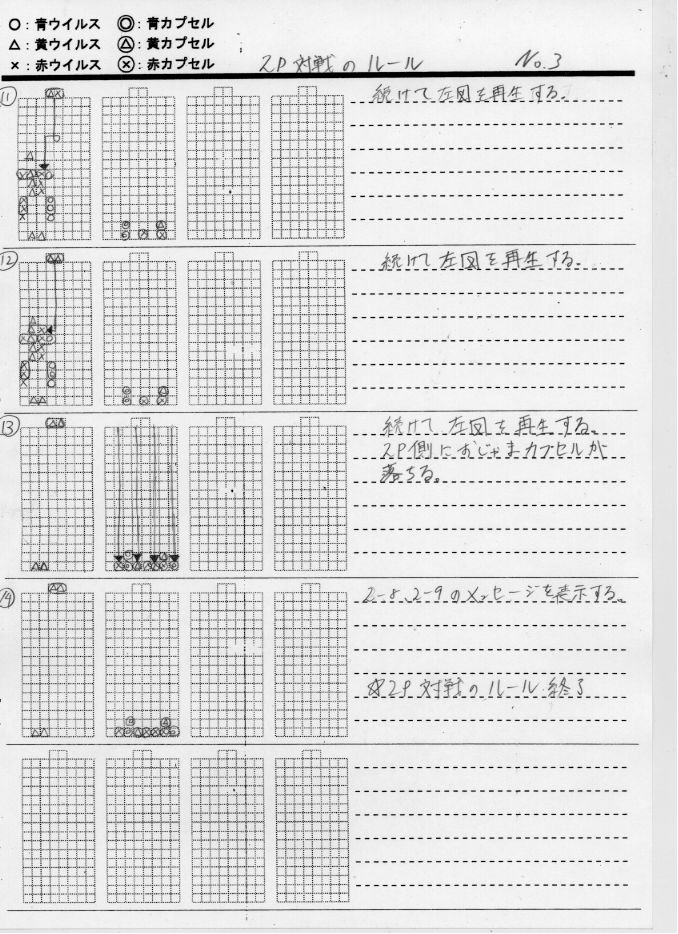 ○：青ウイルス ◎：青カプセル
△：黄ウイルス Ⓐ：黄カプセル
×：赤ウイルス ⊗：赤カプセル
2P対戦のルール No.3
⑪ 続けて左図を再生する。
⑫ 続けて左図を再生する。
⑬ 続けて左図を再生する。
2P側におじゃまカプセルが
落ちる。
⑭ 2-8、2-9のメッセージを表示する。
☆2P対戦のルール終了